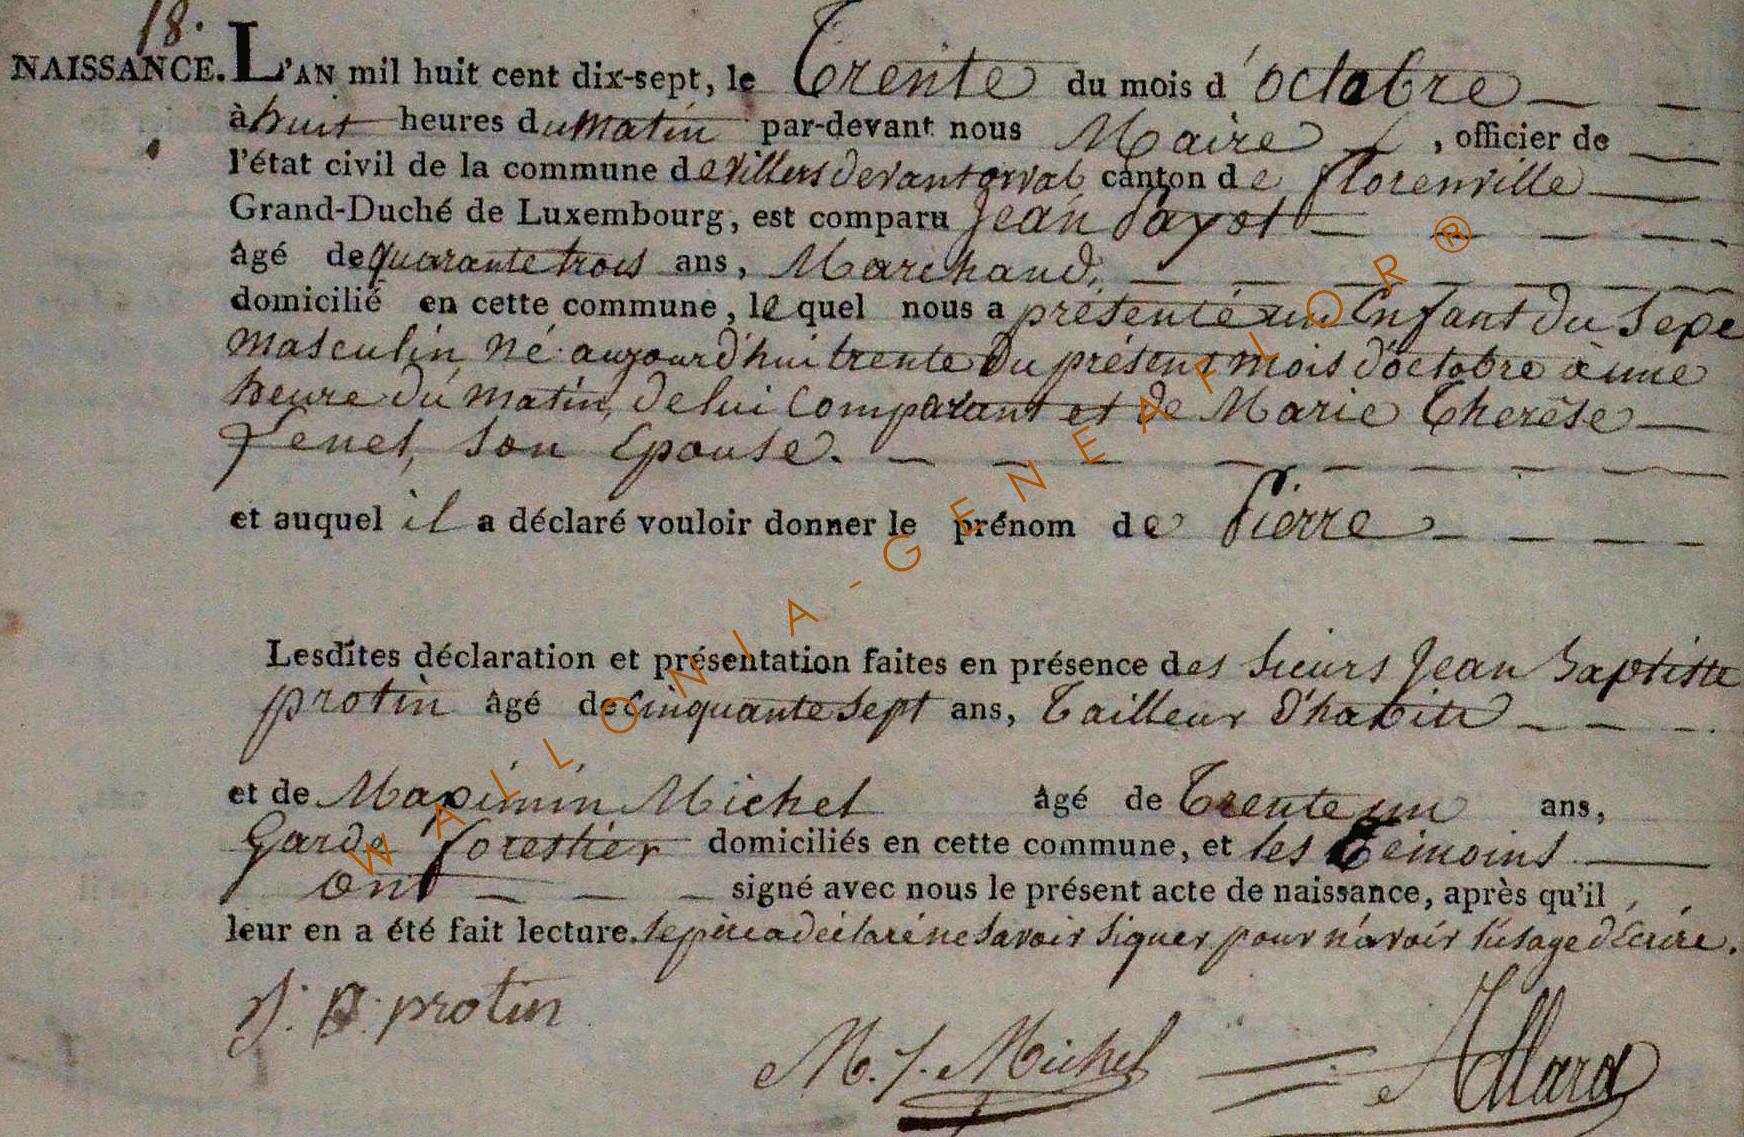 18.
NAISSANCE. L'AN mil huit cent dix-sept, le Trente du mois d'octobre
à huit heures du Matin par-devant nous Maire, officier de
l'état civil de la commune de Villers devant orval canton de florenville
Grand-Duché de Luxembourg, est comparu Jean Payot
âgé de quarante trois ans, Marchand,
domicilié en cette commune, le quel nous a présenté un Enfant du Sexe
masculin né aujourd'hui trente du présent mois d'octobre à une
heure du matin, de lui Comparant et de Marie Therèse
fenet, son Epouse.
et auquel il a déclaré vouloir donner le prénom de Pierre
Lesdites déclaration et présentation faites en présence des Sieurs Jean Baptiste
protin âgé de Cinquante Sept ans, Tailleur d'habits
et de Maximin Michel âgé de Trente un ans,
Garde forestier domiciliés en cette commune, et les Témoins
ont signé avec nous le présent acte de naissance, après qu'il
leur en a été fait lecture. le père a déclaré ne Savoir Signer pour n'avoir l'usage d'Ecrire.
J. B. protin
M. J. Michel
Allard
WALLONIA-GENEAFLOR ®